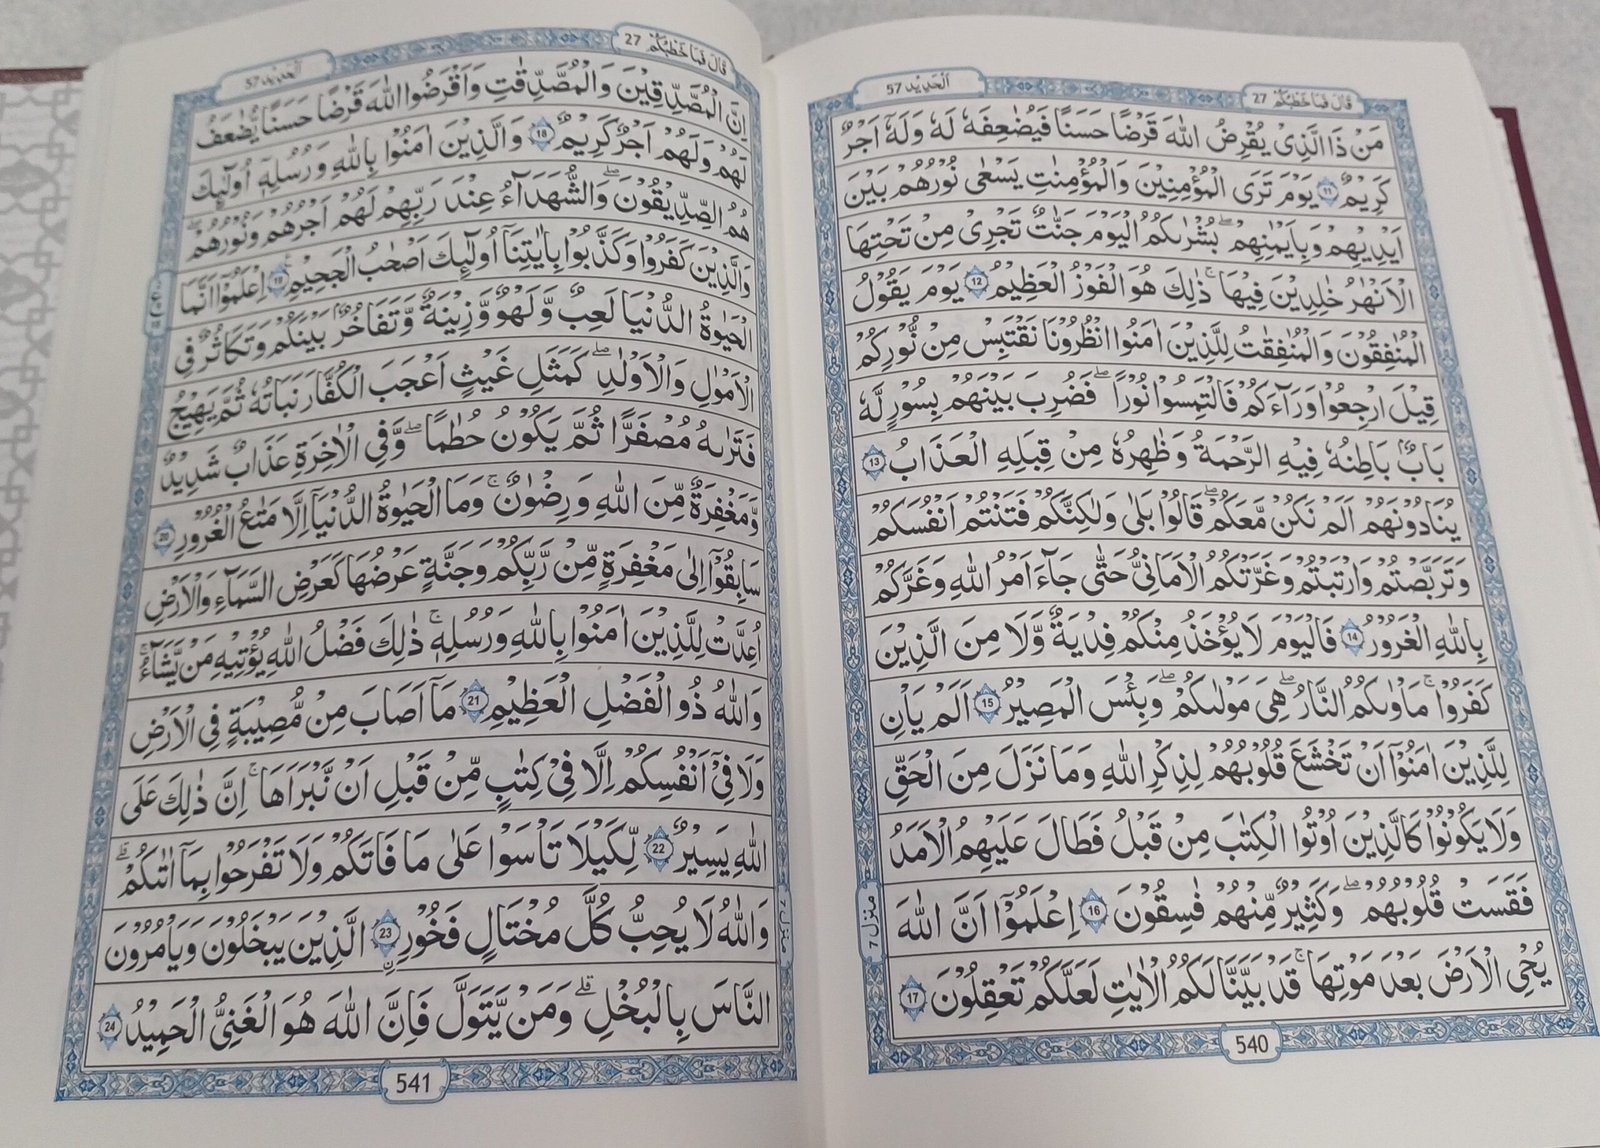 قَالَ فَمَا خَطْبُكُمْ 27
اَلْحَدِيْد 57
مَنْ ذَا الَّذِیْ یُقْرِضُ اللّٰهَ قَرْضًا حَسَنًا فَیُضٰعِفَهٗ لَهٗ وَلَهٗۤ اَجْرٌ
كَرِیْمٌ ۝11 یَوْمَ تَرَی الْمُؤْمِنِیْنَ وَالْمُؤْمِنٰتِ یَسْعٰی نُوْرُهُمْ بَیْنَ
اَیْدِیْهِمْ وَبِاَیْمٰنِهِمْ ۖ بُشْرٰىكُمُ الْیَوْمَ جَنّٰتٌ تَجْرِیْ مِنْ تَحْتِهَا
الْاَنْهٰرُ خٰلِدِیْنَ فِیْهَا ۚ ذٰلِكَ هُوَ الْفَوْزُ الْعَظِیْمُ ۝12 یَوْمَ یَقُوْلُ
الْمُنٰفِقُوْنَ وَالْمُنٰفِقٰتُ لِلَّذِیْنَ اٰمَنُوا انْظُرُوْنَا نَقْتَبِسْ مِنْ نُّوْرِكُمْ
قِیْلَ ارْجِعُوْا وَرَآءَكُمْ فَالْتَمِسُوْا نُوْرًا ۖ فَضُرِبَ بَیْنَهُمْ بِسُوْرٍ لَّهٗ
بَابٌۢ بَاطِنُهٗ فِیْهِ الرَّحْمَةُ وَظٰهِرُهٗ مِنْ قِبَلِهِ الْعَذَابُ ۝13
یُنَادُوْنَهُمْ اَلَمْ نَكُنْ مَّعَكُمْ ۖ قَالُوْا بَلٰی وَلٰكِنَّكُمْ فَتَنْتُمْ اَنْفُسَكُمْ
وَتَرَبَّصْتُمْ وَارْتَبْتُمْ وَغَرَّتْكُمُ الْاَمَانِیُّ حَتّٰی جَآءَ اَمْرُ اللّٰهِ وَغَرَّكُمْ
بِاللّٰهِ الْغَرُوْرُ ۝14 فَالْیَوْمَ لَا یُؤْخَذُ مِنْكُمْ فِدْیَةٌ وَّلَا مِنَ الَّذِیْنَ
كَفَرُوْا ۚ مَاْوٰىكُمُ النَّارُ ۖ هِیَ مَوْلٰىكُمْ ۖ وَبِئْسَ الْمَصِیْرُ ۝15 اَلَمْ یَاْنِ
لِلَّذِیْنَ اٰمَنُوْۤا اَنْ تَخْشَعَ قُلُوْبُهُمْ لِذِكْرِ اللّٰهِ وَمَا نَزَلَ مِنَ الْحَقِّ
وَلَا یَكُوْنُوْا كَالَّذِیْنَ اُوْتُوا الْكِتٰبَ مِنْ قَبْلُ فَطَالَ عَلَیْهِمُ الْاَمَدُ
فَقَسَتْ قُلُوْبُهُمْ ۖ وَكَثِیْرٌ مِّنْهُمْ فٰسِقُوْنَ ۝16 اِعْلَمُوْۤا اَنَّ اللّٰهَ
یُحْیِ الْاَرْضَ بَعْدَ مَوْتِهَا ۚ قَدْ بَیَّنَّا لَكُمُ الْاٰیٰتِ لَعَلَّكُمْ تَعْقِلُوْنَ ۝17
منزل ٧
540
قَالَ فَمَا خَطْبُكُمْ 27
اَلْحَدِيْد 57
اِنَّ الْمُصَّدِّقِیْنَ وَالْمُصَّدِّقٰتِ وَاَقْرَضُوا اللّٰهَ قَرْضًا حَسَنًا یُّضٰعَفُ
لَهُمْ وَلَهُمْ اَجْرٌ كَرِیْمٌ ۝18 وَالَّذِیْنَ اٰمَنُوْا بِاللّٰهِ وَرُسُلِهٖۤ اُولٰٓىِٕكَ
هُمُ الصِّدِّیْقُوْنَ ۖ وَالشُّهَدَآءُ عِنْدَ رَبِّهِمْ لَهُمْ اَجْرُهُمْ وَنُوْرُهُمْ ۖ
وَالَّذِیْنَ كَفَرُوْا وَكَذَّبُوْا بِاٰیٰتِنَاۤ اُولٰٓىِٕكَ اَصْحٰبُ الْجَحِیْمِ ۝19 اِعْلَمُوْۤا اَنَّمَا
الْحَیٰوةُ الدُّنْیَا لَعِبٌ وَّلَهْوٌ وَّزِیْنَةٌ وَّتَفَاخُرٌۢ بَیْنَكُمْ وَتَكَاثُرٌ فِی
الْاَمْوٰلِ وَالْاَوْلٰدِ ۖ كَمَثَلِ غَیْثٍ اَعْجَبَ الْكُفَّارَ نَبَاتُهٗ ثُمَّ یَهِیْجُ
فَتَرٰىهُ مُصْفَرًّا ثُمَّ یَكُوْنُ حُطٰمًا ۖ وَّفِی الْاٰخِرَةِ عَذَابٌ شَدِیْدٌ
وَّمَغْفِرَةٌ مِّنَ اللّٰهِ وَرِضْوٰنٌ ۚ وَمَا الْحَیٰوةُ الدُّنْیَاۤ اِلَّا مَتٰعُ الْغُرُوْرِ ۝20
سَابِقُوْۤا اِلٰی مَغْفِرَةٍ مِّنْ رَّبِّكُمْ وَجَنَّةٍ عَرْضُهَا كَعَرْضِ السَّمَآءِ وَالْاَرْضِ
اُعِدَّتْ لِلَّذِیْنَ اٰمَنُوْا بِاللّٰهِ وَرُسُلِهٖ ۚ ذٰلِكَ فَضْلُ اللّٰهِ یُؤْتِیْهِ مَنْ یَّشَآءُ ۚ
وَاللّٰهُ ذُو الْفَضْلِ الْعَظِیْمِ ۝21 مَاۤ اَصَابَ مِنْ مُّصِیْبَةٍ فِی الْاَرْضِ
وَلَا فِیْۤ اَنْفُسِكُمْ اِلَّا فِیْ كِتٰبٍ مِّنْ قَبْلِ اَنْ نَّبْرَاَهَا ۚ اِنَّ ذٰلِكَ عَلَی
اللّٰهِ یَسِیْرٌ ۝22 لِّكَیْلَا تَاْسَوْا عَلٰی مَا فَاتَكُمْ وَلَا تَفْرَحُوْا بِمَاۤ اٰتٰىكُمْ ۗ
وَاللّٰهُ لَا یُحِبُّ كُلَّ مُخْتَالٍ فَخُوْرِ ۝23 الَّذِیْنَ یَبْخَلُوْنَ وَیَاْمُرُوْنَ
النَّاسَ بِالْبُخْلِ ۗ وَمَنْ یَّتَوَلَّ فَاِنَّ اللّٰهَ هُوَ الْغَنِیُّ الْحَمِیْدُ ۝24
منزل ٧
541